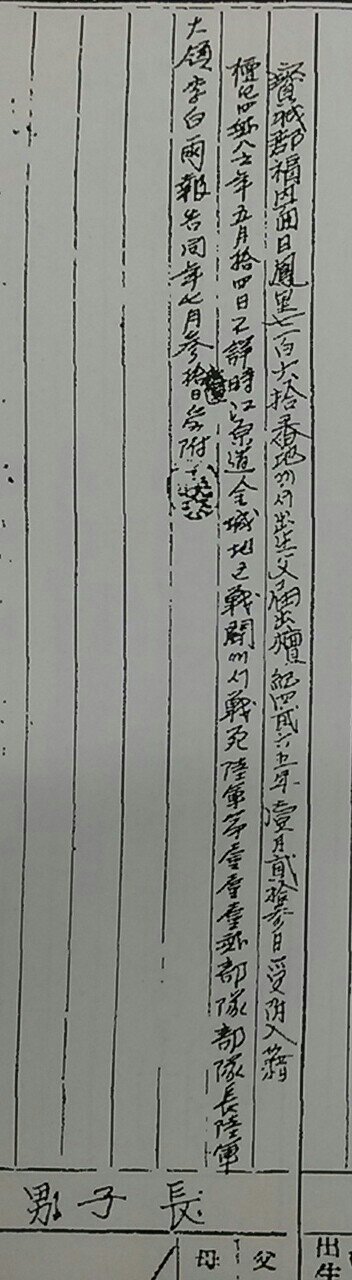 寶城郡福内面日鳳里七百六拾番地에서出生父届出檀紀四貳六五年壹月貳拾參日受附入籍
檀紀四貳八六年五月拾四日不詳時江原道金城地區戰鬪에서戰死陸軍第壹壹壹號部隊部隊長陸軍
大領李白雨報告同年七月參拾日受附
長子男
出生
父
母